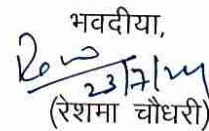 भवदीया,
23/7/24
(रेशमा चौधरी)